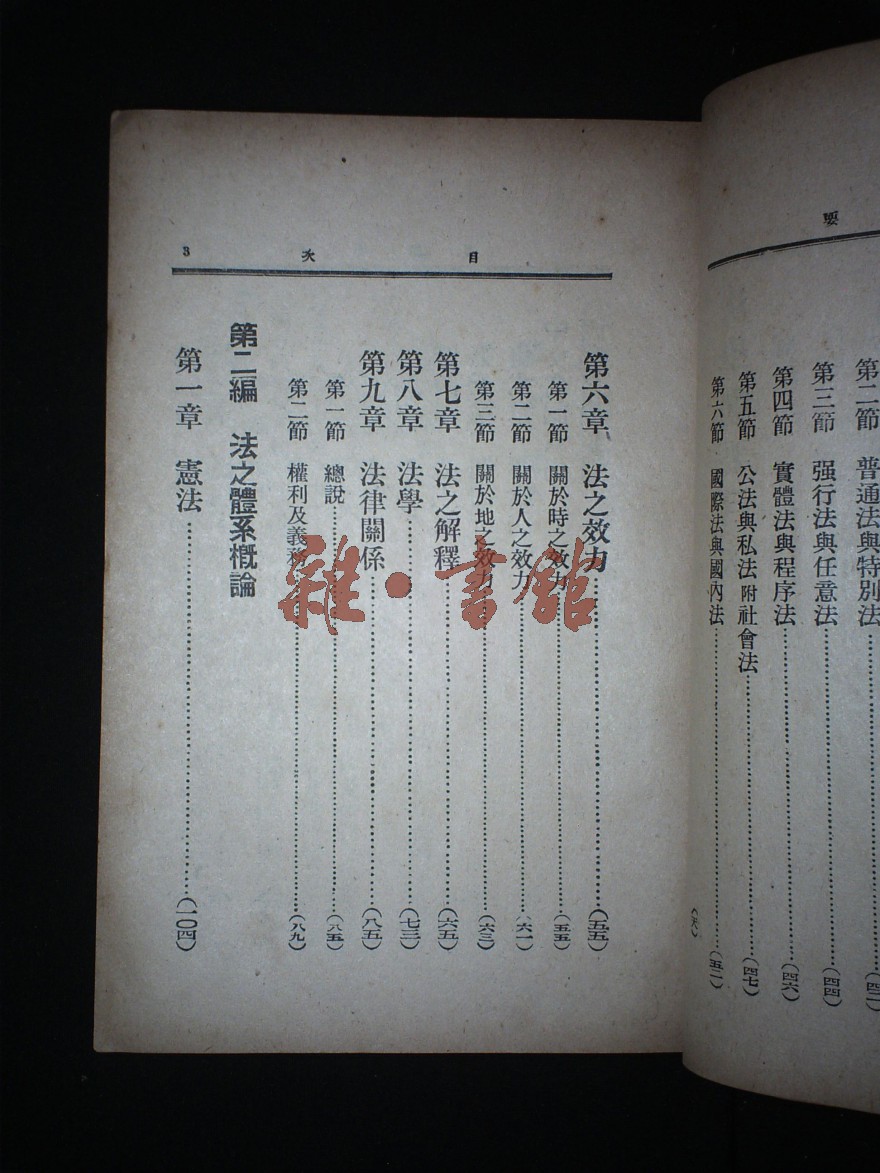 要
第二節 普通法與特別法……(四二)
第三節 强行法與任意法……(四四)
第四節 實體法與程序法……(四六)
第五節 公法與私法附社會法……(四七)
第六節 國際法與國內法……(五二)
目 次 3
第六章 法之效力……(五五)
第一節 關於時之效力……(五五)
第二節 關於人之效力……(六一)
第三節 關於地之效力……(六三)
第七章 法之解釋……(六五)
第八章 法學……(七三)
第九章 法律關係……(八五)
第一節 總說……(八五)
第二節 權利及義務……(八九)
第二編 法之體系概論
第一章 憲法……(一〇四)
雜·書館